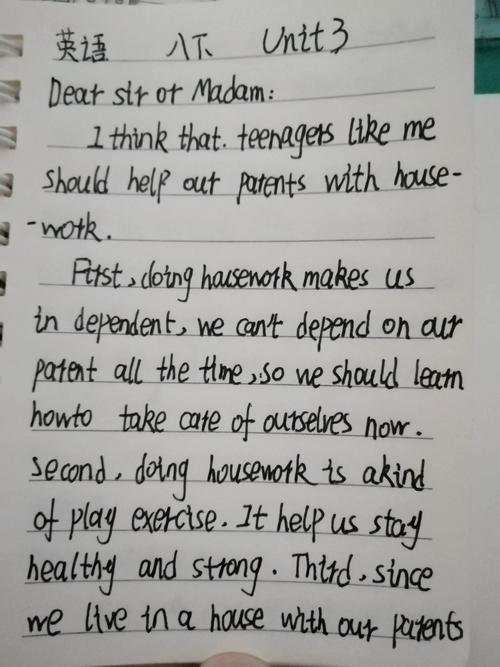 英语 八下 Unit 3
Dear sir or Madam:
I think that. teenagers like me
should help our parents with house-
-work.
First, doing housework makes us
in dependent, we can't depend on our
parent all the time, so we should learn
howto take care of ourselves now.
second, doing housework is akind
of play exercise. It help us stay
healthy and strong. Third, since
we live in a house with our parents